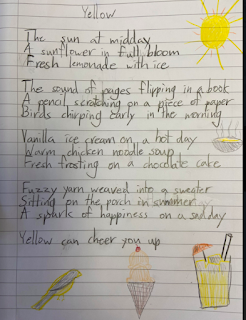 Yellow
The sun at midday
A sunflower in full bloom
Fresh lemonade with ice
The sound of pages flipping in a book
A pencil scratching on a piece of paper
Birds chirping early in the morning
Vanilla ice cream on a hot day
Warm chicken noodle soup
Fresh frosting on a chocolate cake
Fuzzy yarn weaved into a sweater
Sitting on the porch in summer
A spark of happiness on a sad day
Yellow can cheer you up